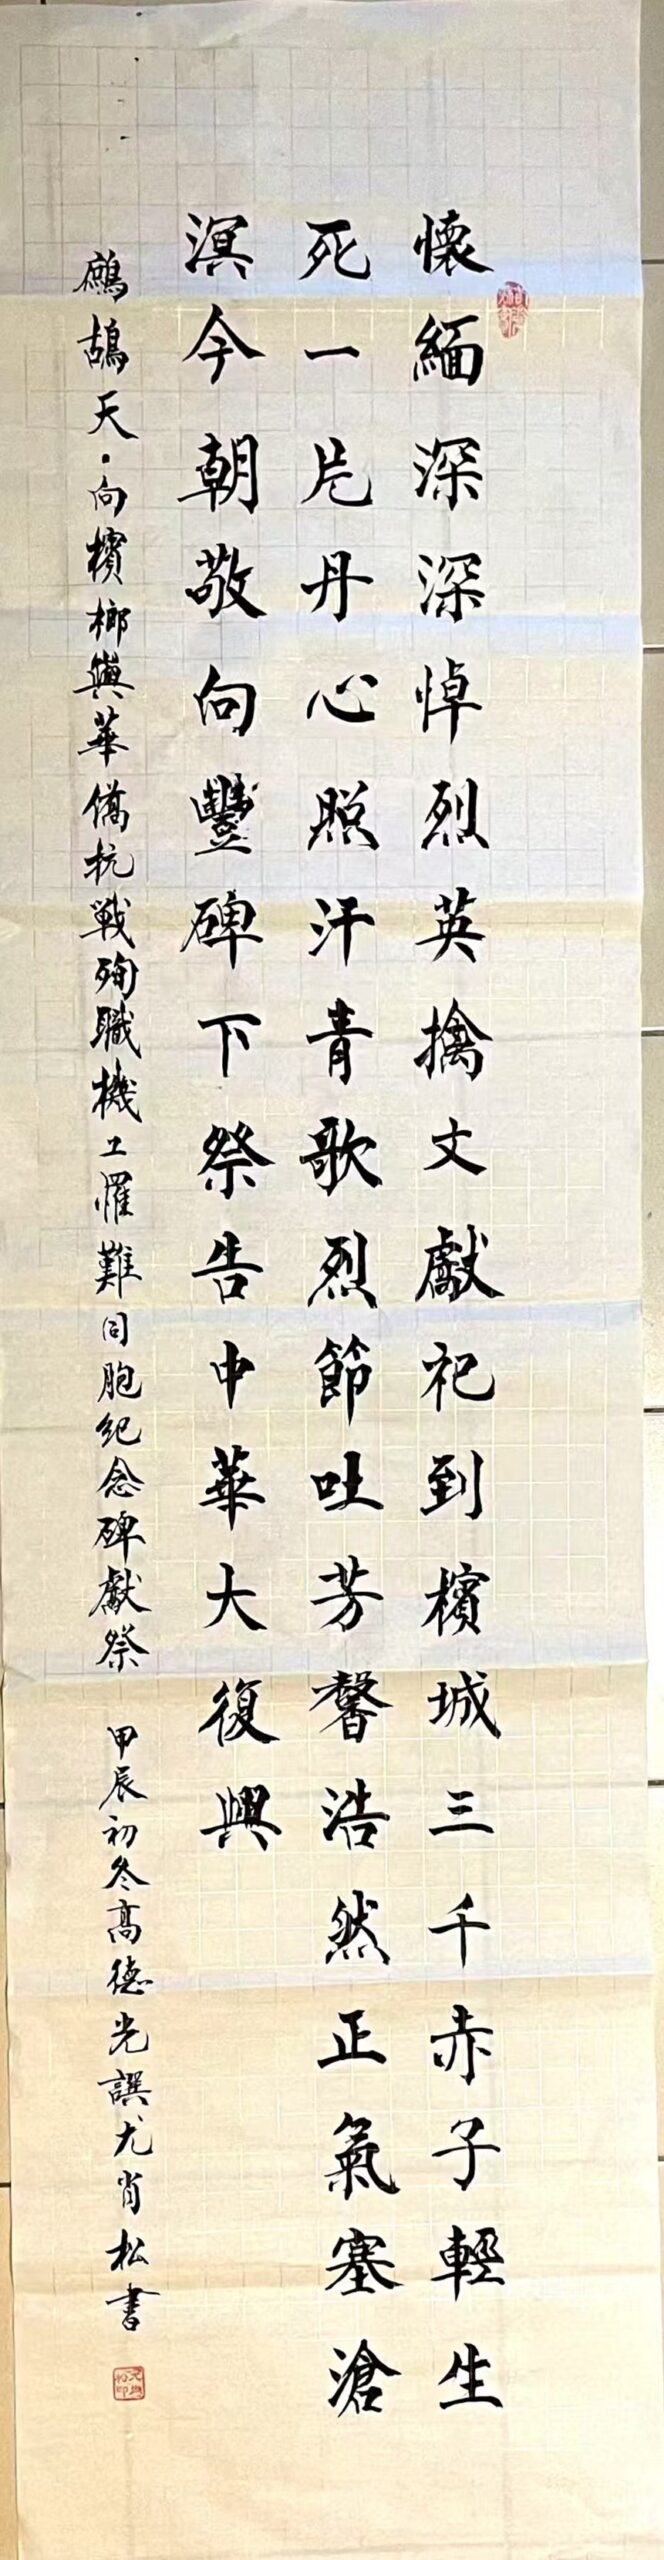 懷緬深深悼烈英擒文獻祀到檳城三千赤子輕生
死一片丹心照汗青歌烈節吐芳馨浩然正氣塞滄
溟今朝敬向豐碑下祭告中華大復興
鷓鴣天·向檳榔嶼華僑抗戰殉職機工罹難同胞紀念碑獻祭 甲辰初冬高德光譔尤肖松書